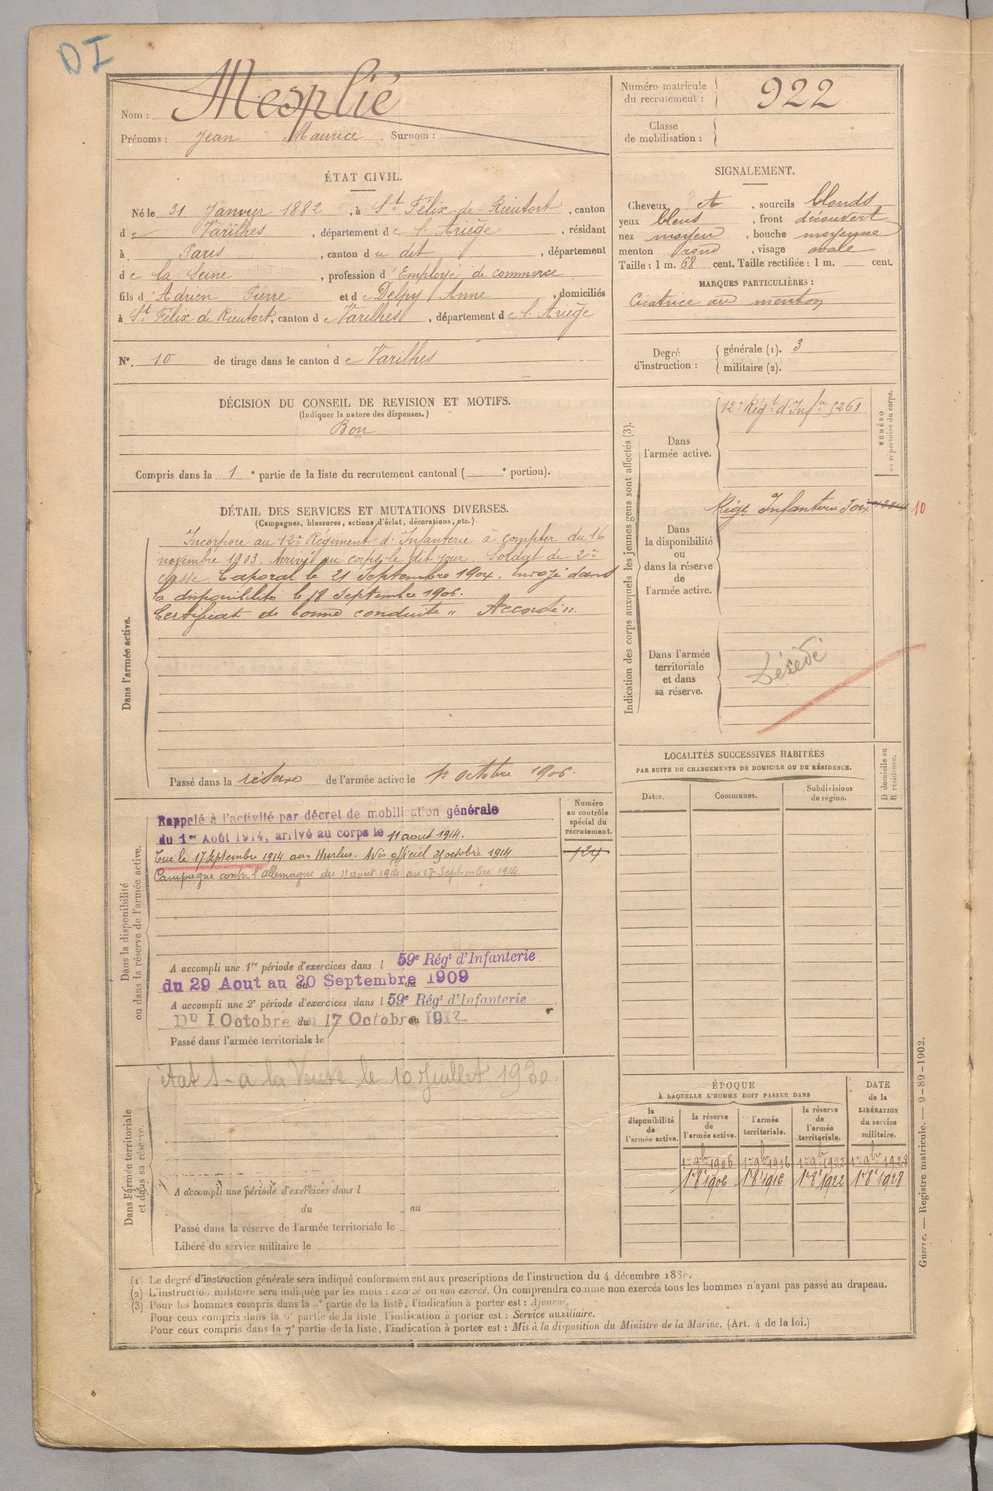 DI
Nom : Mesplié
Prénoms : Jean Maurice Surnom :
ÉTAT CIVIL.
Né le 31 Janvier 1882, à St Félix de Rieutort, canton
de Varilhes, département de l'Ariège, résidant
à Paris, canton du dit, département
de la Seine, profession d'Employé de commerce
fils d'Adrien Pierre et de Delpy Anne, domiciliés
à St Félix de Rieutort, canton de Varilhes, département de l'Ariège
N°. 10 de tirage dans le canton de Varilhes
DÉCISION DU CONSEIL DE REVISION ET MOTIFS.
(Indiquer la nature des dispenses.)
Bon
Compris dans la 1e partie de la liste du recrutement cantonal ( e portion).
DÉTAIL DES SERVICES ET MUTATIONS DIVERSES.
(Campagnes, blessures, actions d'éclat, décorations, etc.)
Dans l'armée active.
Incorporé au 12e Régiment d'Infanterie à compter du 16
novembre 1903. Arrivé au corps le dit jour. Soldat de 2e
classe. Caporal le 21 Septembre 1904. envoyé dans
la disponibilité le 18 Septembre 1906.
Certificat de bonne conduite " Accordé ".
Passé dans la réserve de l'armée active le 1er octobre 1906.
Dans la disponibilité
ou dans la réserve de l'armée active.
Numéro
au contrôle
spécial du
recrutement.
Rappelé à l'activité par décret de mobilisation générale
du 1er Août 1914, arrivé au corps le 11 aout 1914.
Tué le 17 Septembre 1914 au Hurlus. Avis officiel 21 octobre 1914
Campagne contre l'Allemagne du 11 aout 1914 au 17 Septembre 1914.
A accompli une 1re période d'exercices dans l 59e Régt d'Infanterie
du 29 Aout au 20 Septembre 1909
A accompli une 2e période d'exercices dans l 59e Régt d'Infanterie
Du 1 Octobre du 17 Octobre au 1912
Passé dans l'armée territoriale le
Dans l'armée territoriale
et dans sa réserve.
état S- a la Veuve le 10 Juillet 1930.
A accompli une période d'exercices dans l
du au
Passé dans la réserve de l'armée territoriale le
Libéré du service militaire le
Numéro matricule
du recrutement : 922
Classe
de mobilisation :
SIGNALEMENT.
Cheveux et, sourcils blonds
yeux bleus, front découvert
nez moyen, bouche moyenne
menton rond, visage ovale
Taille : 1 m. 68 cent. Taille rectifiée : 1 m. cent.
MARQUES PARTICULIÈRES :
Cicatrice au menton
Degré
d'instruction :
générale (1). 3
militaire (2).
Indication des corps auxquels les jeunes gens sont affectés (3).
NUMÉRO
au répertoire du corps.
Dans
l'armée active.
12e Régt d'Infie 5261
Dans
la disponibilité
ou
dans la réserve
de
l'armée active.
Régt Infanterie Foix
10
Dans l'armée
territoriale
et dans
sa réserve.
Décédé
LOCALITÉS SUCCESSIVES HABITÉES
PAR SUITE DE CHANGEMENTS DE DOMICILE OU DE RÉSIDENCE.
Dates.
Communes.
Subdivisions
de région.
D domicile ou
R résidence.
ÉPOQUE
À LAQUELLE L'HOMME DOIT PASSER DANS
DATE
de la
LIBÉRATION
du service
militaire.
la
disponibilité
de
l'armée active.
la réserve
de
l'armée active.
l'armée
territoriale.
la réserve
de
l'armée
territoriale.
1er 9bre 1906 1er 9bre 1916 1er 9bre 1922 1er 9bre 1928
1er 8e 1906 1er 8e 1916 1er 8e 1922 1er 8e 1928
(1) Le degré d'instruction générale sera indiqué conformément aux prescriptions de l'instruction du 4 décembre
(2) L'instruction militaire sera indiquée par les mots : exercé ou non exercé. On comprendra comme non exercés tous les hommes n'ayant pas passé au drapeau.
(3) Pour les hommes compris dans la 5e partie de la liste, l'indication à porter est : Ajourné.
Pour ceux compris dans la 6e partie de la liste, l'indication à porter est : Service auxiliaire.
Pour ceux compris dans la 7e partie de la liste, l'indication à porter est : Mis à la disposition du Ministre de la Marine. (Art. 4 de la loi.)
Guerre. — Registre matricule. — 9-89-1902.